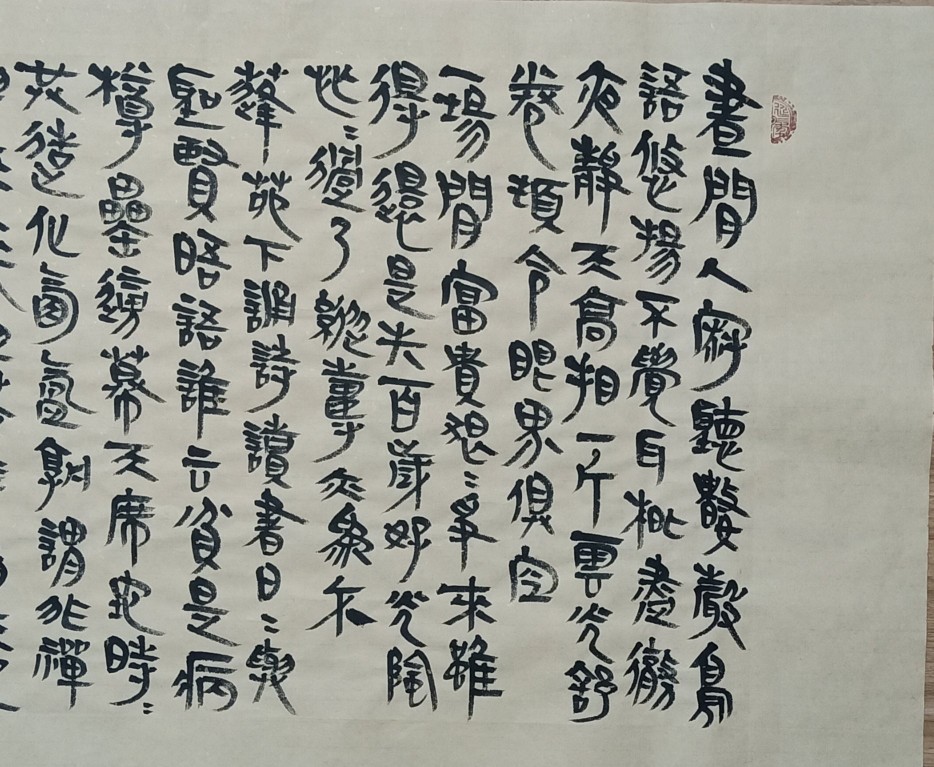 晝閒人寂聽數聲鳥
語悠揚不覺耳根盡徹
夜靜天高相一片雲光舒
卷頓令眼界俱空
一場閒富貴狠〻爭來雖
得還是失百歲好光陰
忙〻過了縱壽亦為夭
蓬茆下誦詩讀書日〻與
聖賢晤語誰云貧是病
樽罍邊幕天席地時〻
共造化氤氳孰謂非禪